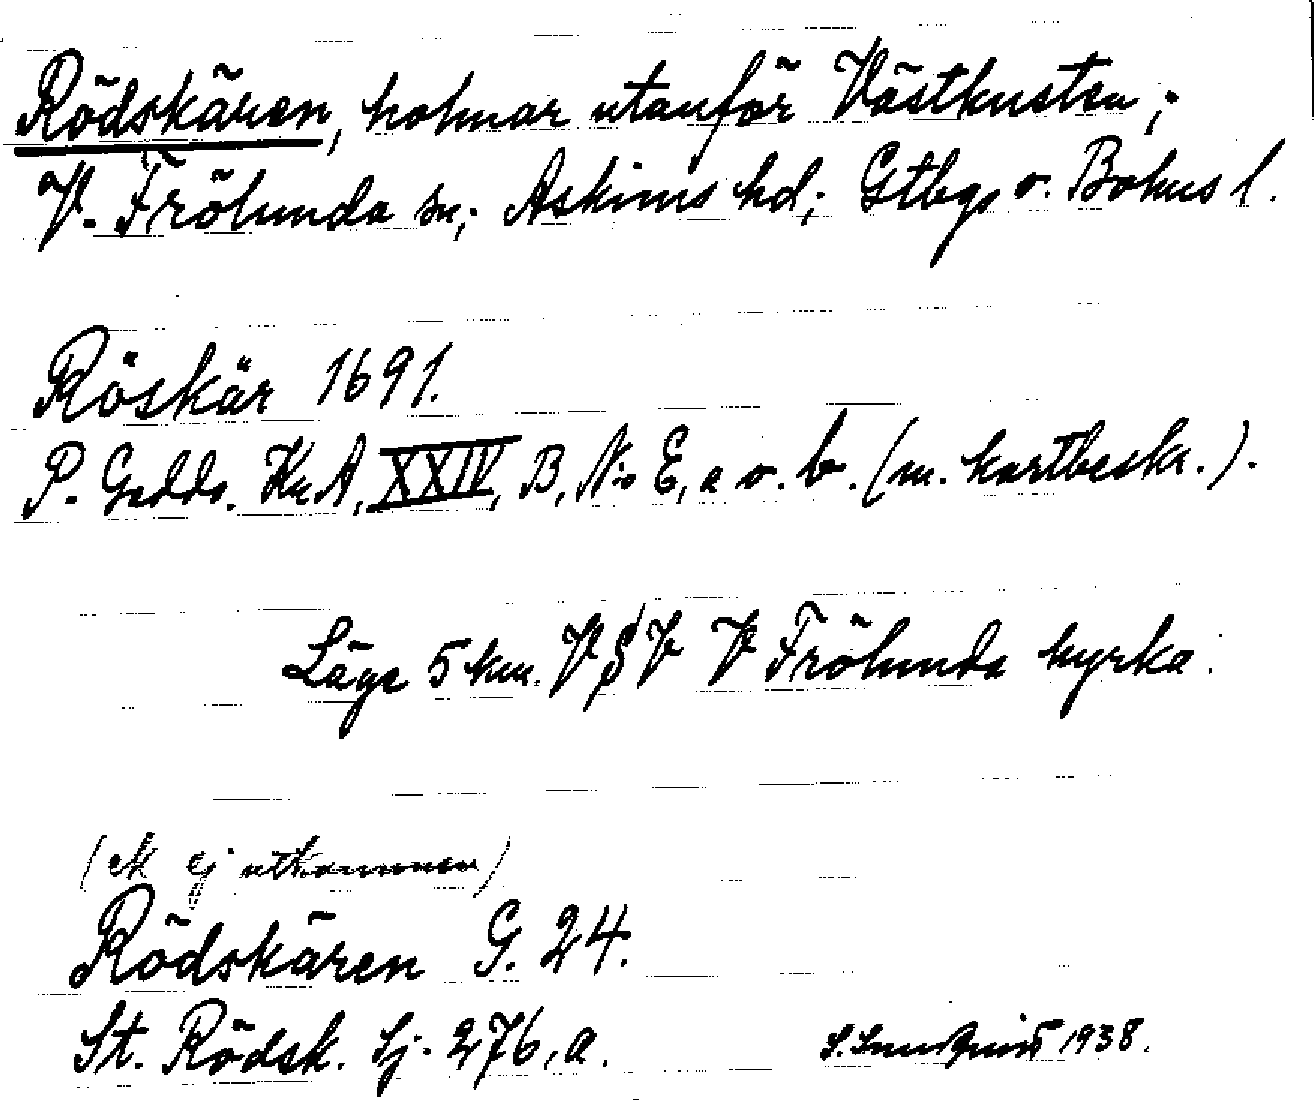 Rödskären, holmar utanför Västkusten;
V. Frölunda sn; Askims hd; Gtbgs o. Bohus l.
Röskär 1691.
P. Gedda. Kr. A, XXIV, B, No E, a o. b. (m. kartbeskr.).
Läge 5 km. V V V Frölunda kyrka.
(ek ej utkommen)
Rödskären G. 24.
St. Rödsk. Sj. 276, a. 1938.